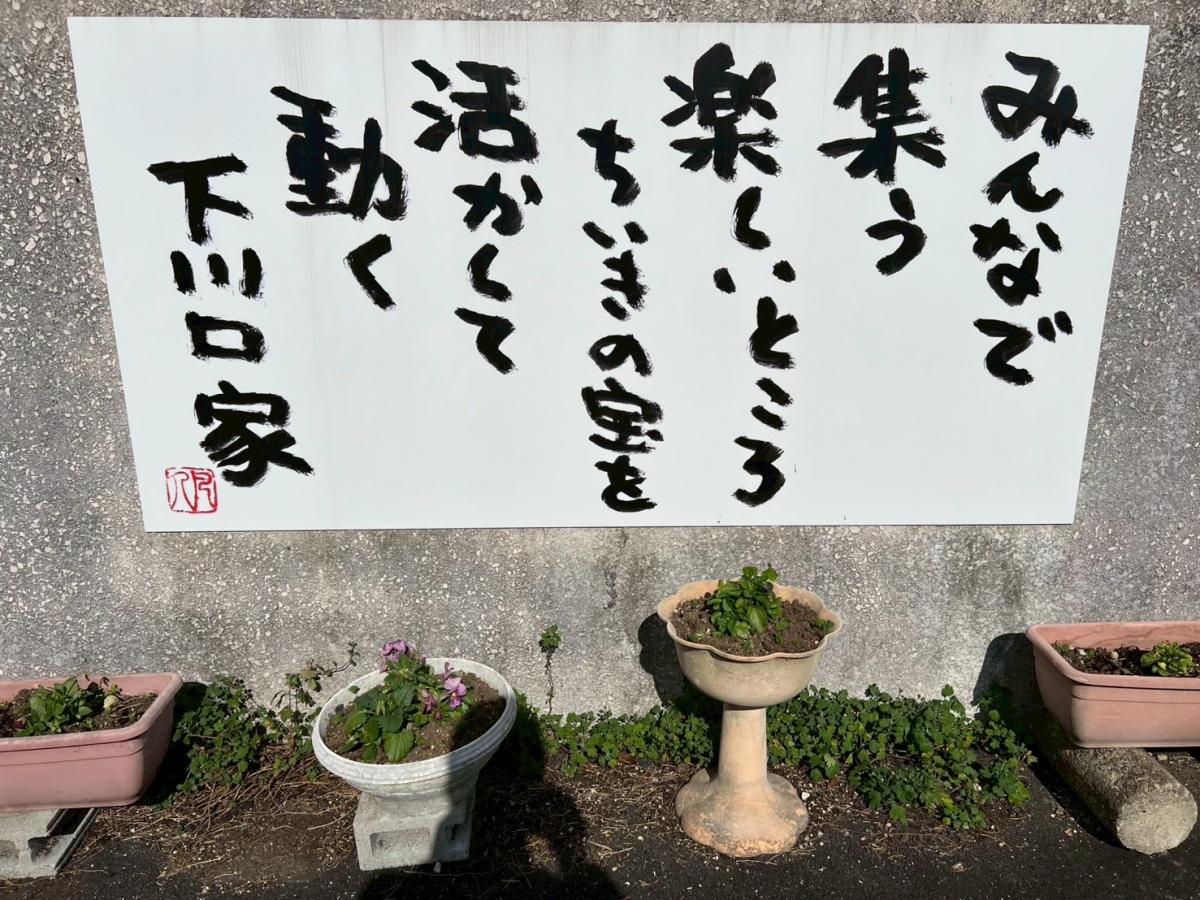 みんなで
集う
楽しいところ
ちいきの宝を
活かして
動く
下川口家